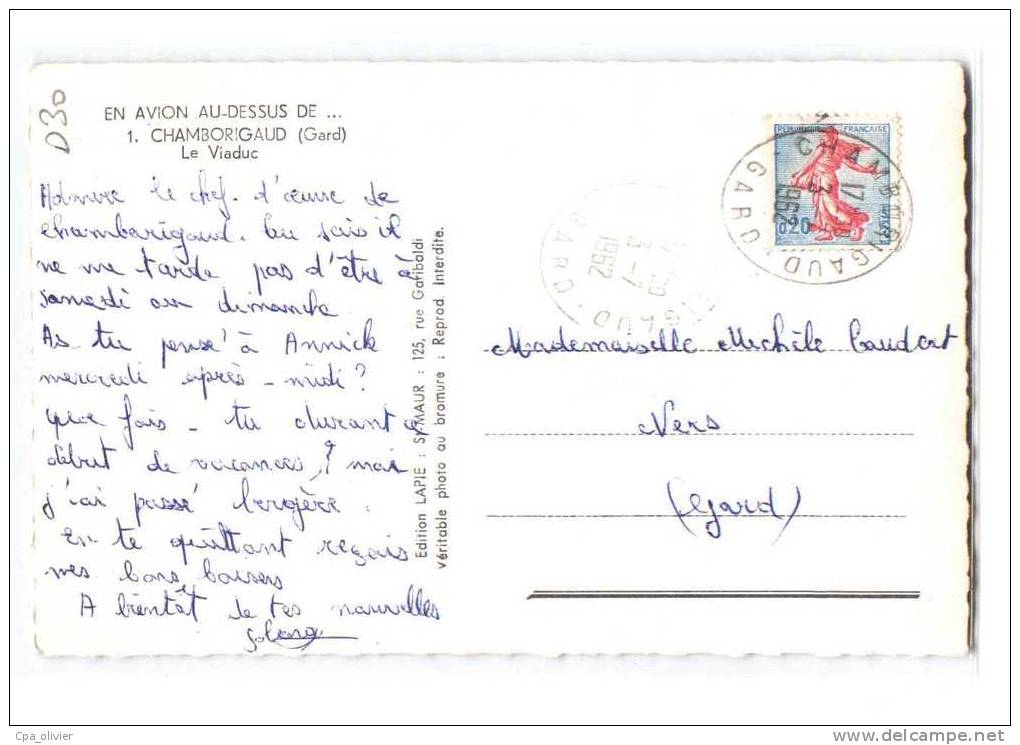 D30
EN AVION AU-DESSUS DE ...
1. CHAMBORIGAUD (Gard)
Le Viaduc
Admire le chef-d'œuvre de
chamborigaud. Tu sais il
ne me tarde pas d'être à
samedi ou dimanche
As tu pensé à Annick
mercredi après-midi ?
que fais-tu durant ce
début de vacances ? moi
j'ai passé bergère.
En te quittant reçois
mes bons baisers
A bientôt de tes nouvelles
Edition LAPIE : St-MAUR : 125, rue Garibaldi
Véritable photo au bromure : Reprod. Interdite.
REPUBLIQUE FRANÇAISE
0,20
POSTES
CHAMBORIGAUD
GARD
17
3
1962
GARD
3-1
1962
Mademoiselle Michèle
Ners
(Gard)
Cpa_olivier
www.delcampe.net